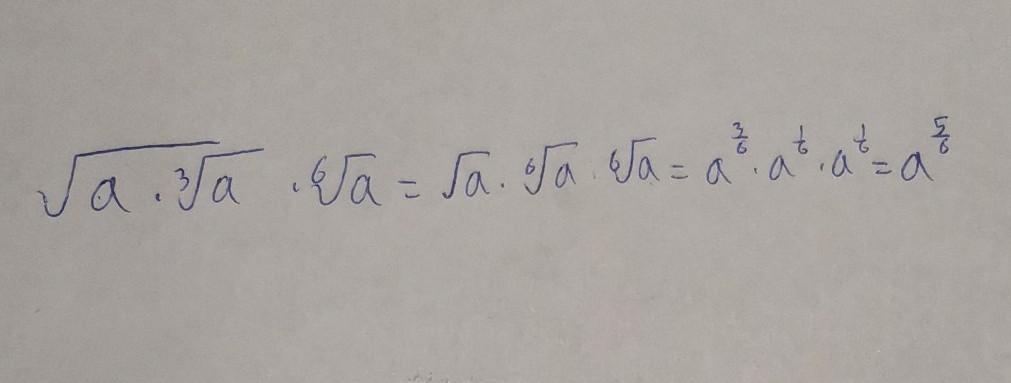 √(a · ∛a) · ⁶√a = √a · ⁶√a · ⁶√a = a^(3/6) · a^(1/6) · a^(1/6) = a^(5/6)